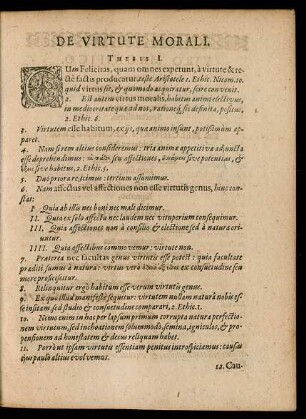 DE VIRTUTE MORALI.
THESIS I.
CUm Felicitas, quam omnes expetunt, à virtute & re-
ctè factis producatur, teste Aristotele 1. Ethic. Nicom. 10.
quid virtus sit, & quomodo acquiratur, scire convenit.
2. Est autem virtus moralis, habitus animi electivus,
in mediocritate quæ ad nos, ratione est definita, positus,
2. Ethic. 6.
3. Virtutem esse habitum, ex ijs, quæ animo insunt, potissimùm ap-
paret.
4. Nam si rem altius consideremus: tria animæ appetitivæ ad nactu
esse deprehendimus: πάθη seu affectiones, seve potentias, &
seu habitus, 2. Ethic. 5.
5. Duo priora rejicimus: tertium assumimus.
6. Nam affectus vel affectiones non esse virtutis genus, hinc con-
stat:
I. Quia ab illis nec boni nec mali dicimur.
II. Quia ex solo affectu nec laudem nec vituperium consequimur.
III. Quia affectiones non à consilio & electione sed à natura ori-
untur.
IIII. Quia affectibus commovemur: virtute non.
7. Præterea nec facultas genus virtutis esse potest: quia facultate
præditi sumus à natura: virtus verò ex consuetudine seu
more proficiscitur.
8. Relinquitur ergò habitum esse verum virtutis genus.
9. Ex quo illud manifestè sequitur: virtutem nullam naturâ nobis es-
se insitam sed studio & consuetudine comparari, 2. Ethic. 1.
10. Nemo enim in hac per lapsum primum corrupta natura perfectio-
nem virtutum, sed inchoationem solummodo, semina, igniculos, & pro-
pensionem ad honestatem & decus reliquam habet.
11. Porrò ut ipsam virtutis essentiam penitus introspiciamus: causas
ejus paulo altius evolvemus.
12. Cau-